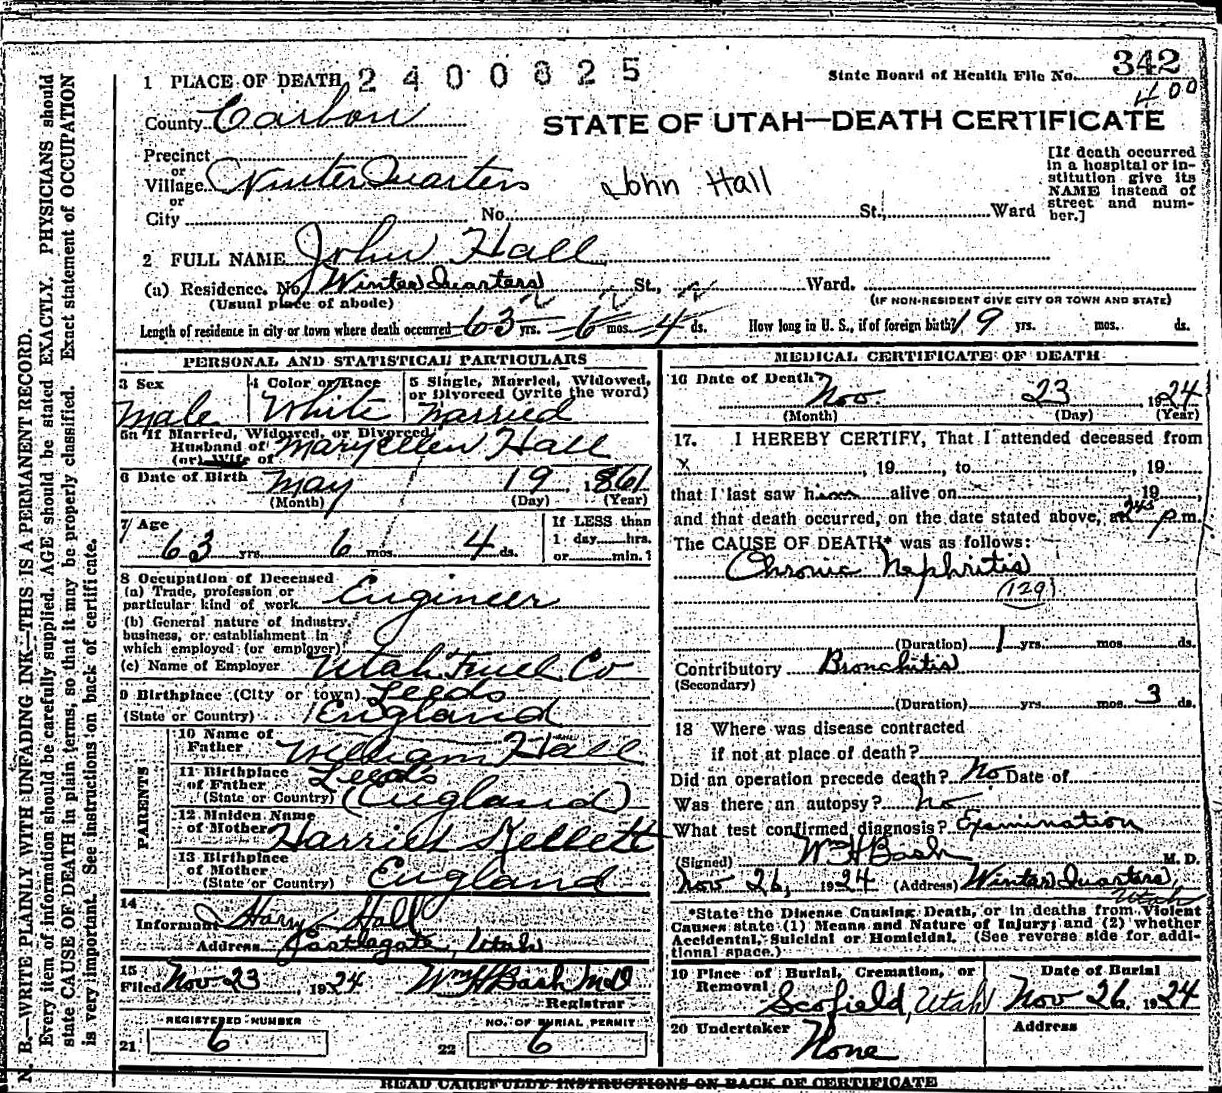 342
State Board of Health File No.
400
1 PLACE OF DEATH 2400825
County Carbon
STATE OF UTAH—DEATH CERTIFICATE
Precinct
or
Village Winter Quarters
or
City
John Hall
No. St., Ward
[If death occurred
in a hospital or in-
stitution give its
NAME instead of
street and num-
ber.]
2 FULL NAME John Hall
(a) Residence. No. Winter Quarters St., Ward.
(Usual place of abode)
(IF NON-RESIDENT GIVE CITY OR TOWN AND STATE)
Length of residence in city or town where death occurred 63 yrs. 6 mos. 4 ds. How long in U. S., if of foreign birth? 19 yrs. mos. ds.
PERSONAL AND STATISTICAL PARTICULARS
3 Sex
Male
4 Color or Race
White
5 Single, Married, Widowed,
or Divorced (write the word)
married
5a If Married, Widowed, or Divorced
Husband of
(or) Wife of
Mary Ellen Hall
6 Date of Birth May 19 1861
(Month) (Day) (Year)
7 Age
63 yrs. 6 mos. 4 ds.
If LESS than
1 day hrs.
or min.?
8 Occupation of Deceased
(a) Trade, profession or
particular kind of work Engineer
(b) General nature of industry,
business, or establishment in
which employed (or employer)
(c) Name of Employer Utah Fuel Co
9 Birthplace (City or town) Leeds
(State or Country) England
PARENTS
10 Name of
Father William Hall
11 Birthplace
of Father Leeds
(State or Country) (England)
12 Maiden Name
of Mother Harriet Kellett
13 Birthplace
of Mother
(State or Country) England
14
Informant Harry Hall
Address Castlegate, Utah
15
Filed Nov 23, 1924 Wm H Bash MD
Registrar
REGISTERED NUMBER
21 6
NO. OF BURIAL PERMIT
22 6
MEDICAL CERTIFICATE OF DEATH
16 Date of Death
Nov. 23 1924
(Month) (Day) (Year)
17. I HEREBY CERTIFY, That I attended deceased from
x , 19 , to , 19
that I last saw h alive on 19 ,
and that death occurred, on the date stated above, at 245 p.m.
The CAUSE OF DEATH* was as follows:
Chronic Nephritis
(129)
(Duration) 1 yrs. mos. ds.
Contributory Bronchitis
(Secondary)
(Duration) yrs. mos. 3 ds.
18 Where was disease contracted
if not at place of death?
Did an operation precede death? No Date of
Was there an autopsy? no
What test confirmed diagnosis? Examination
(Signed) Wm H Bash M. D.
Nov 26, 1924 (Address) Winter Quarters,
Utah
*State the Disease Causing Death, or in deaths from Violent
Causes state (1) Means and Nature of Injury; and (2) whether
Accidental, Suicidal or Homicidal. (See reverse side for addi-
tional space.)
19 Place of Burial, Cremation, or
Removal
Scofield, Utah
Date of Burial
Nov 26 1924
20 Undertaker
None
Address
READ CAREFULLY INSTRUCTIONS ON BACK OF CERTIFICATE
N. B.—WRITE PLAINLY WITH UNFADING INK—THIS IS A PERMANENT RECORD.
Every item of information should be carefully supplied. AGE should be stated EXACTLY. PHYSICIANS should
state CAUSE OF DEATH in plain terms, so that it may be properly classified. Exact statement of OCCUPATION
is very important. See instructions on back of certificate.